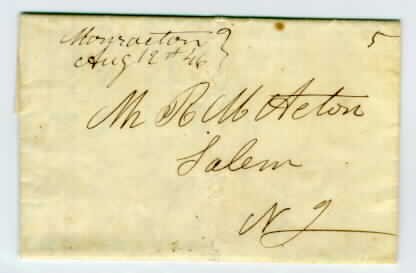 Monroeton
5
Aug 12th 46
Mr R M Acton
Salem
N J